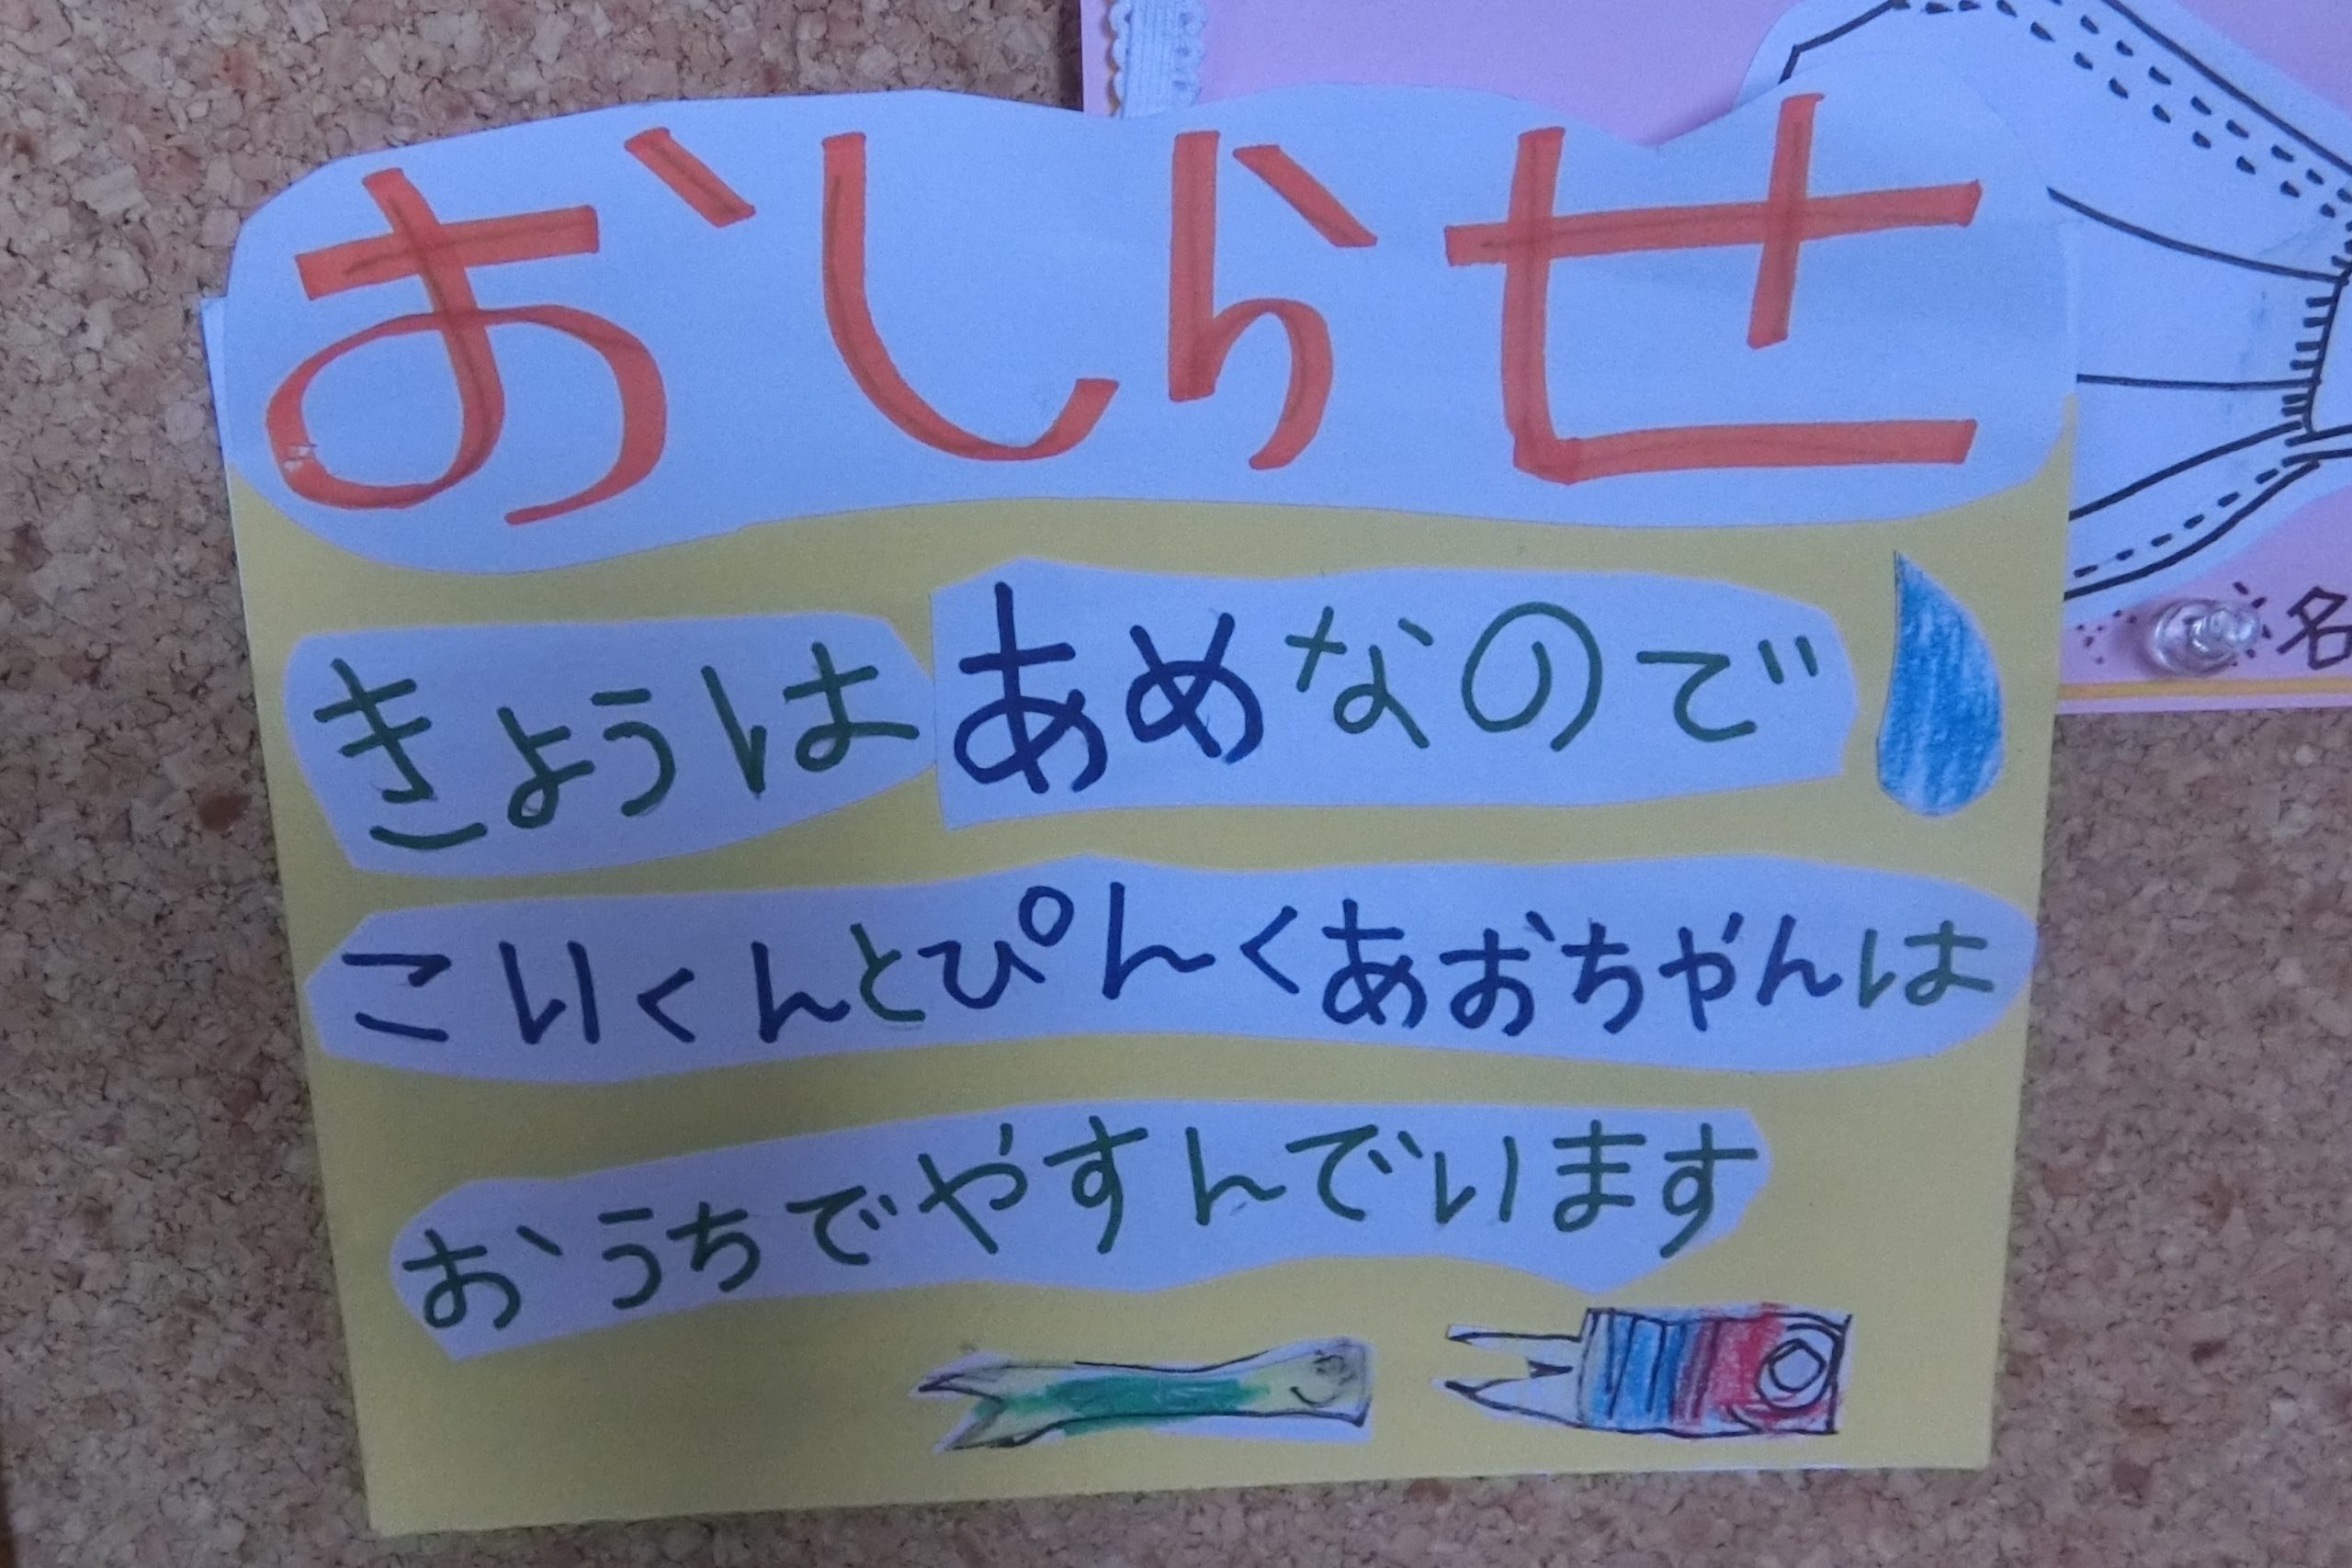 おしらせ
きょうは あめなので
こいくんとぴんくあおちゃんは
おうちでやすんでいます
名